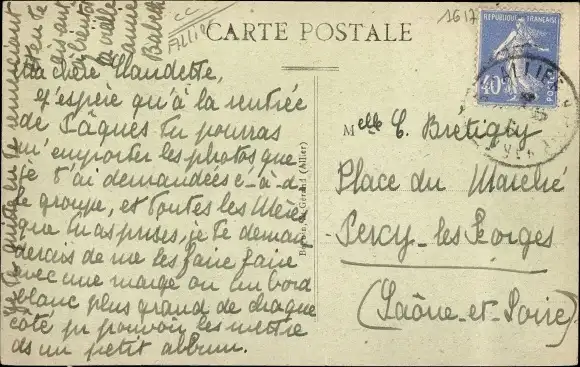 CARTE POSTALE
CC
ALLIER
1617
RÉPUBLIQUE FRANÇAISE
40c
POSTES
ALLIER
Ma chère Claudette,
J'espère qu'à la rentrée
de Pâques tu pourras
m'emporter les photos que
je t'ai demandées c-à-d
le groupe, et toutes les
que tu as prises, je te deman
derais de me les faire faire
avec une marge ou un bord
blanc plus grand de chaque
côté pr pouvoir les mettre
ds un petit album.
Je te quitte en te
disant
à bientôt
ta vieille
amie
Melle C. Brétigny
Place du Marché
Percy-les-Forges
(Saône-et-Loire)